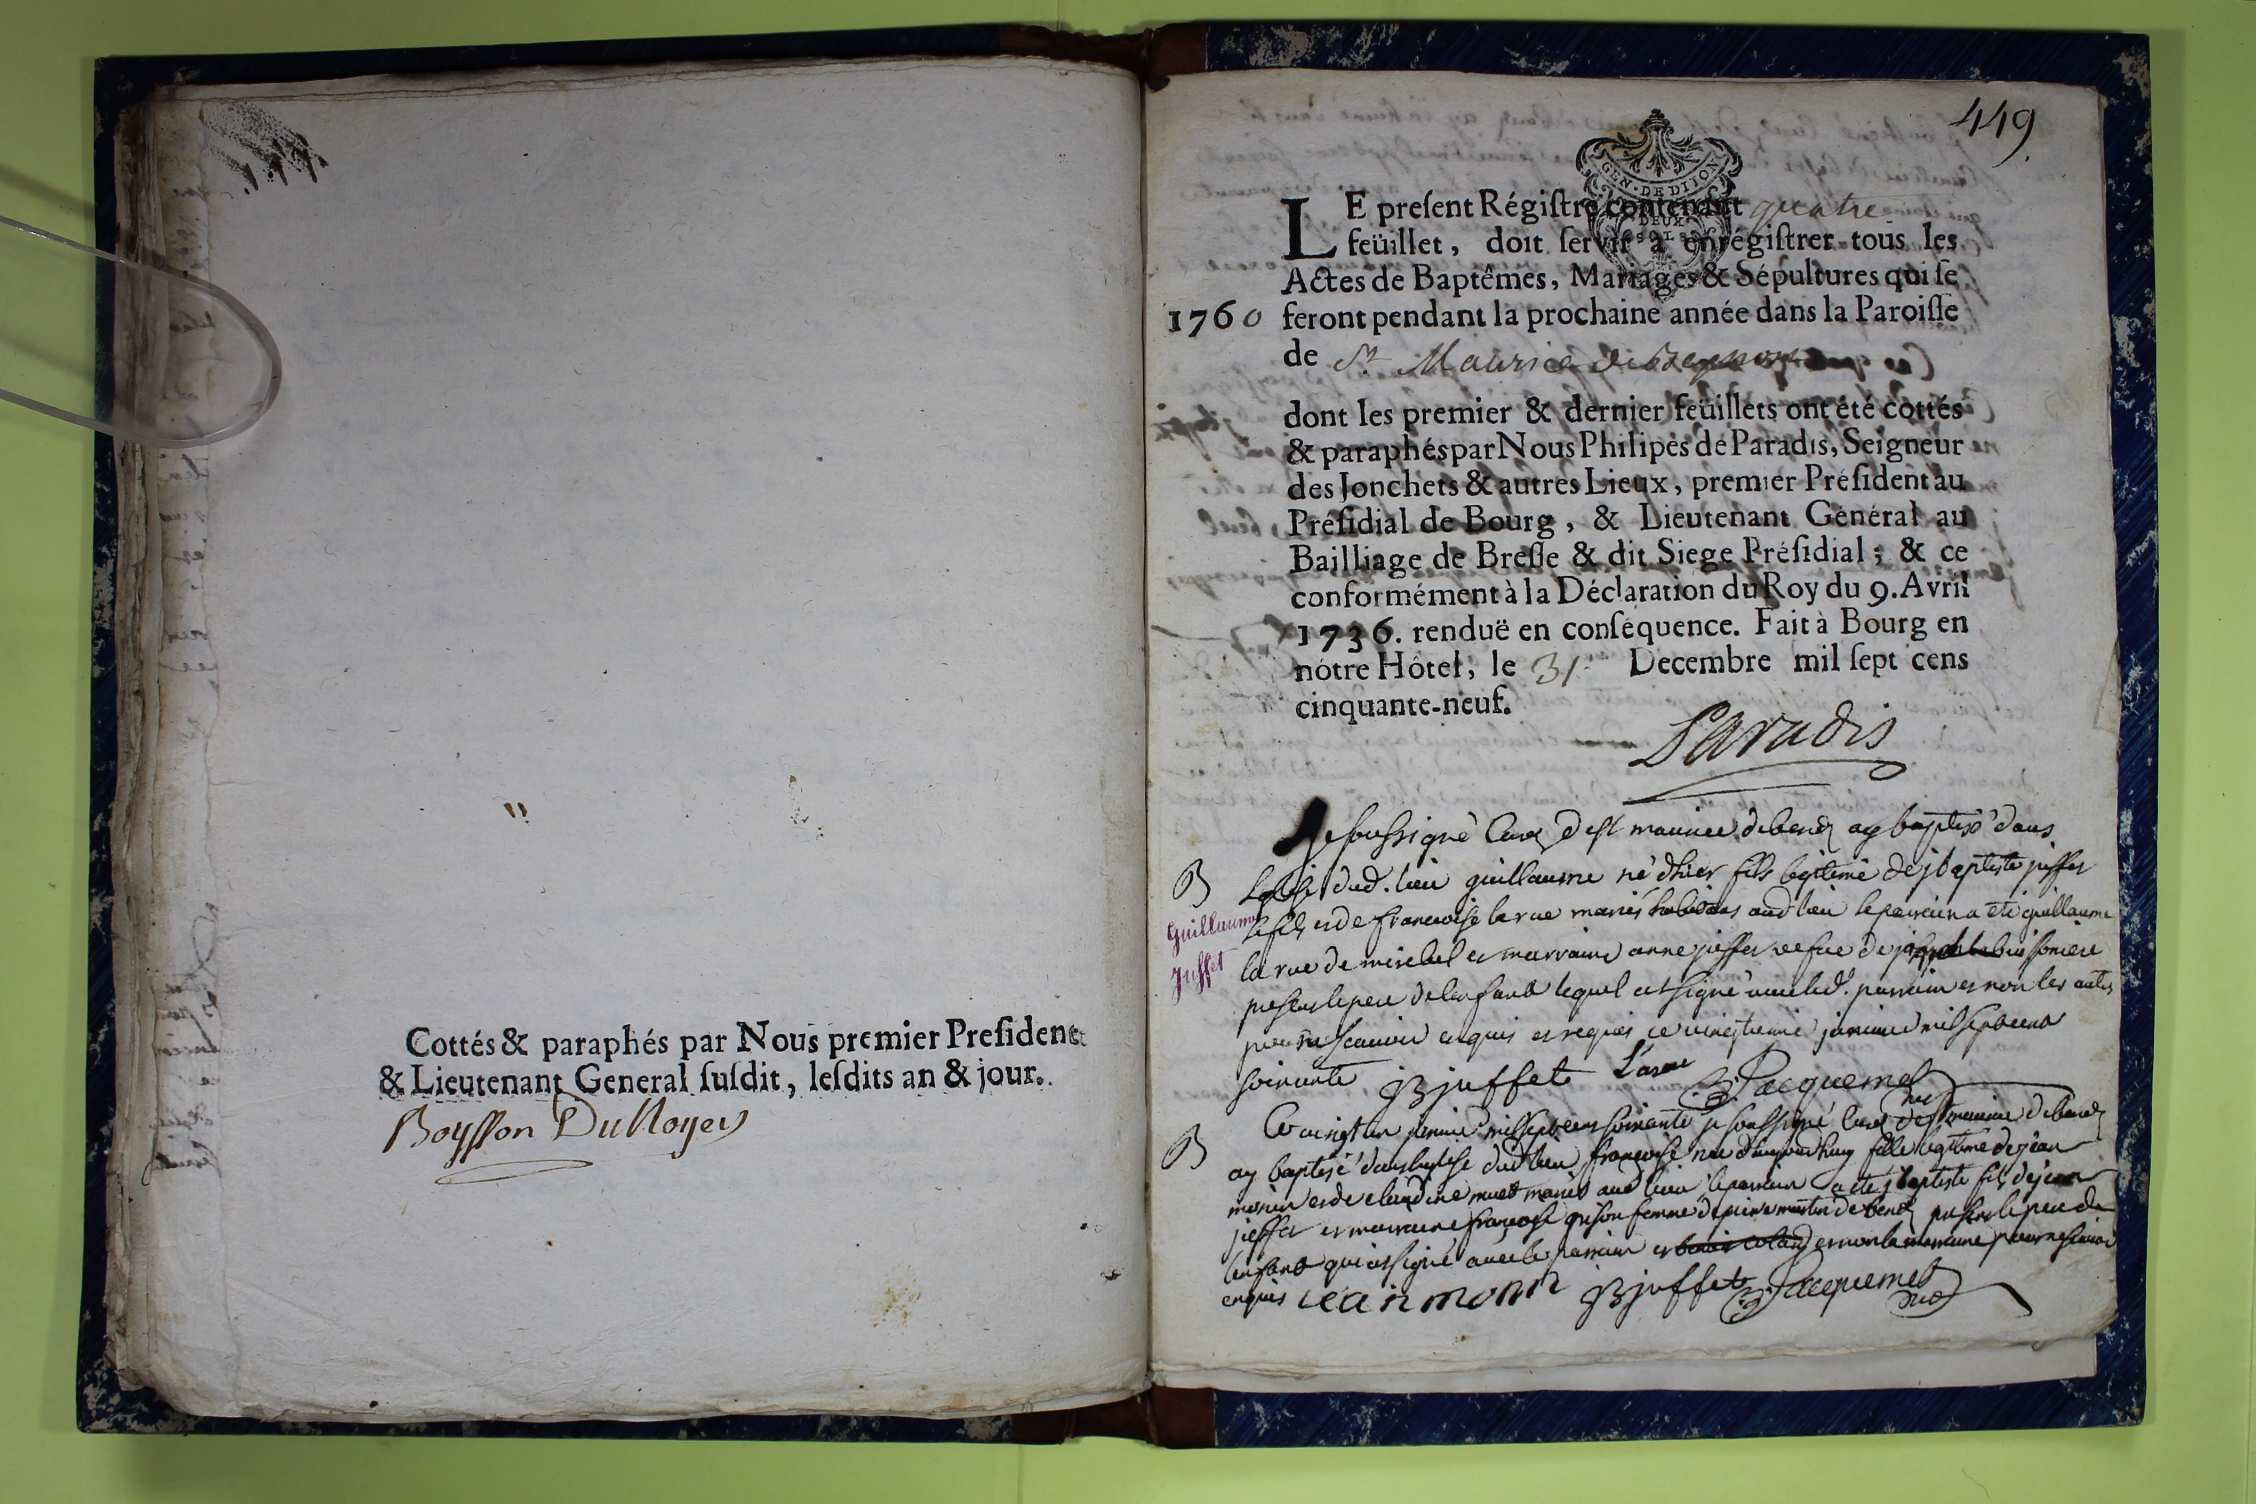 Cottés & paraphés par Nous premier Preſident
& Lieutenant General ſuſdit, leſdits an & jour.
Boysson DuNoyer
449.
GEN. DE DIJON
DEUX
SOLS
LE preſent Régiſtre contenant quatre
feüillet, doit ſervir à enrégiſtrer tous les
Actes de Baptêmes, Mariages & Sépultures qui ſe
1760 feront pendant la prochaine année dans la Paroiſſe
de St. Maurice de Beynost
dont les premier & dernier feüillets ont été cottés
& paraphés par Nous Philipes de Paradis, Seigneur
des Jonchets & autres Lieux, premier Préſident au
Préſidial de Bourg, & Lieutenant Général au
Bailliage de Breſſe & dit Siege Préſidial; & ce
conformément à la Déclaration du Roy du 9. Avril
1736. renduë en conſéquence. Fait à Bourg en
nótre Hôtel, le 31. Decembre mil ſept cens
cinquante-neuf.
Paradis
Je soussigné Curé de st maurice de ay baptisé dans
B
dud. lieu guillaume né d'hier fils légitime de j baptiste juffet
Guillaume
Juffet
et de francoise la rue mariés aud lieu le parrain a été guillaume
la rue de miribel et marraine anne juffet vefue de
présent le père de lenfant lequel a signé avec led. parrain et non les autres
pour ne scavoir enquis et requis ce janvier mil sept cent
soixante JB juffet Larue Jacquemet
B
Ce vingt un janvier mil sept cent soixante je soussigné Curé de st maurice de
ay baptisé dans leglise dud lieu françoise née d'aujourd'huy fille légitime de jean
morin et de claudine mariés aud lieu le parrain a été j baptiste fils de jean
juffet et marraine françoise femme de présent le père de
lenfant qui a signé avec le parrain et non la marraine pour ne scavoir
enquis jean morin JB juffet Jacquemet